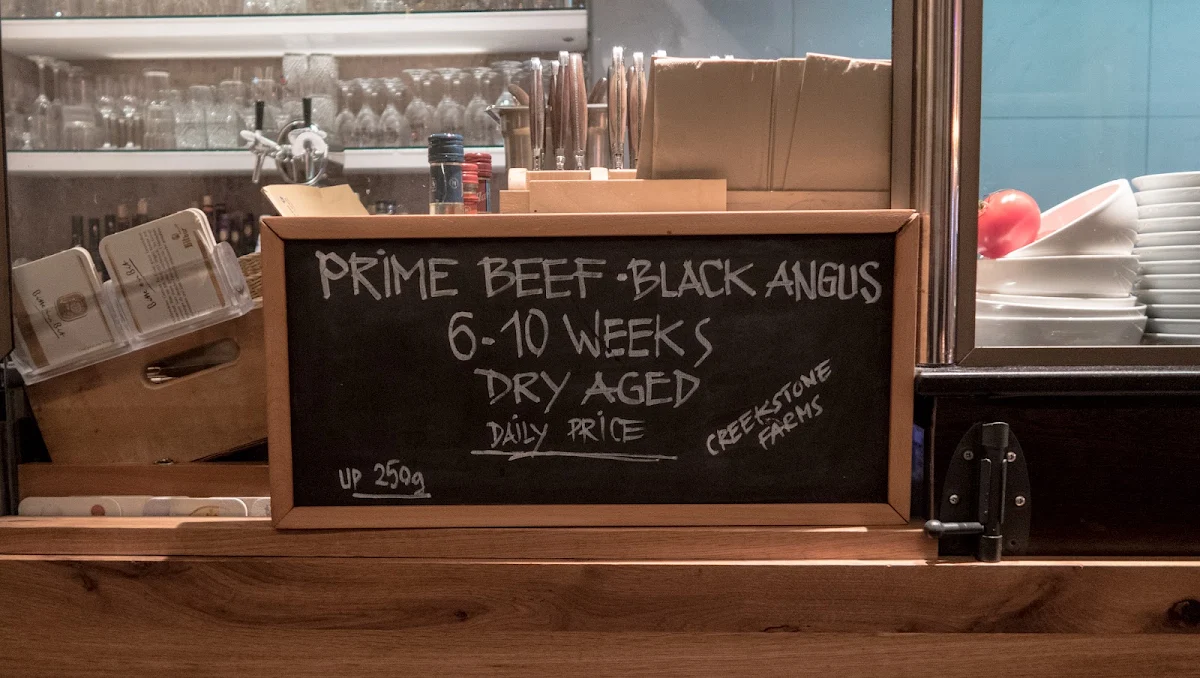 PRIME BEEF · BLACK ANGUS
6-10 WEEKS
DRY AGED
DAILY PRICE
CREEKSTONE
FARMS
UP 250g